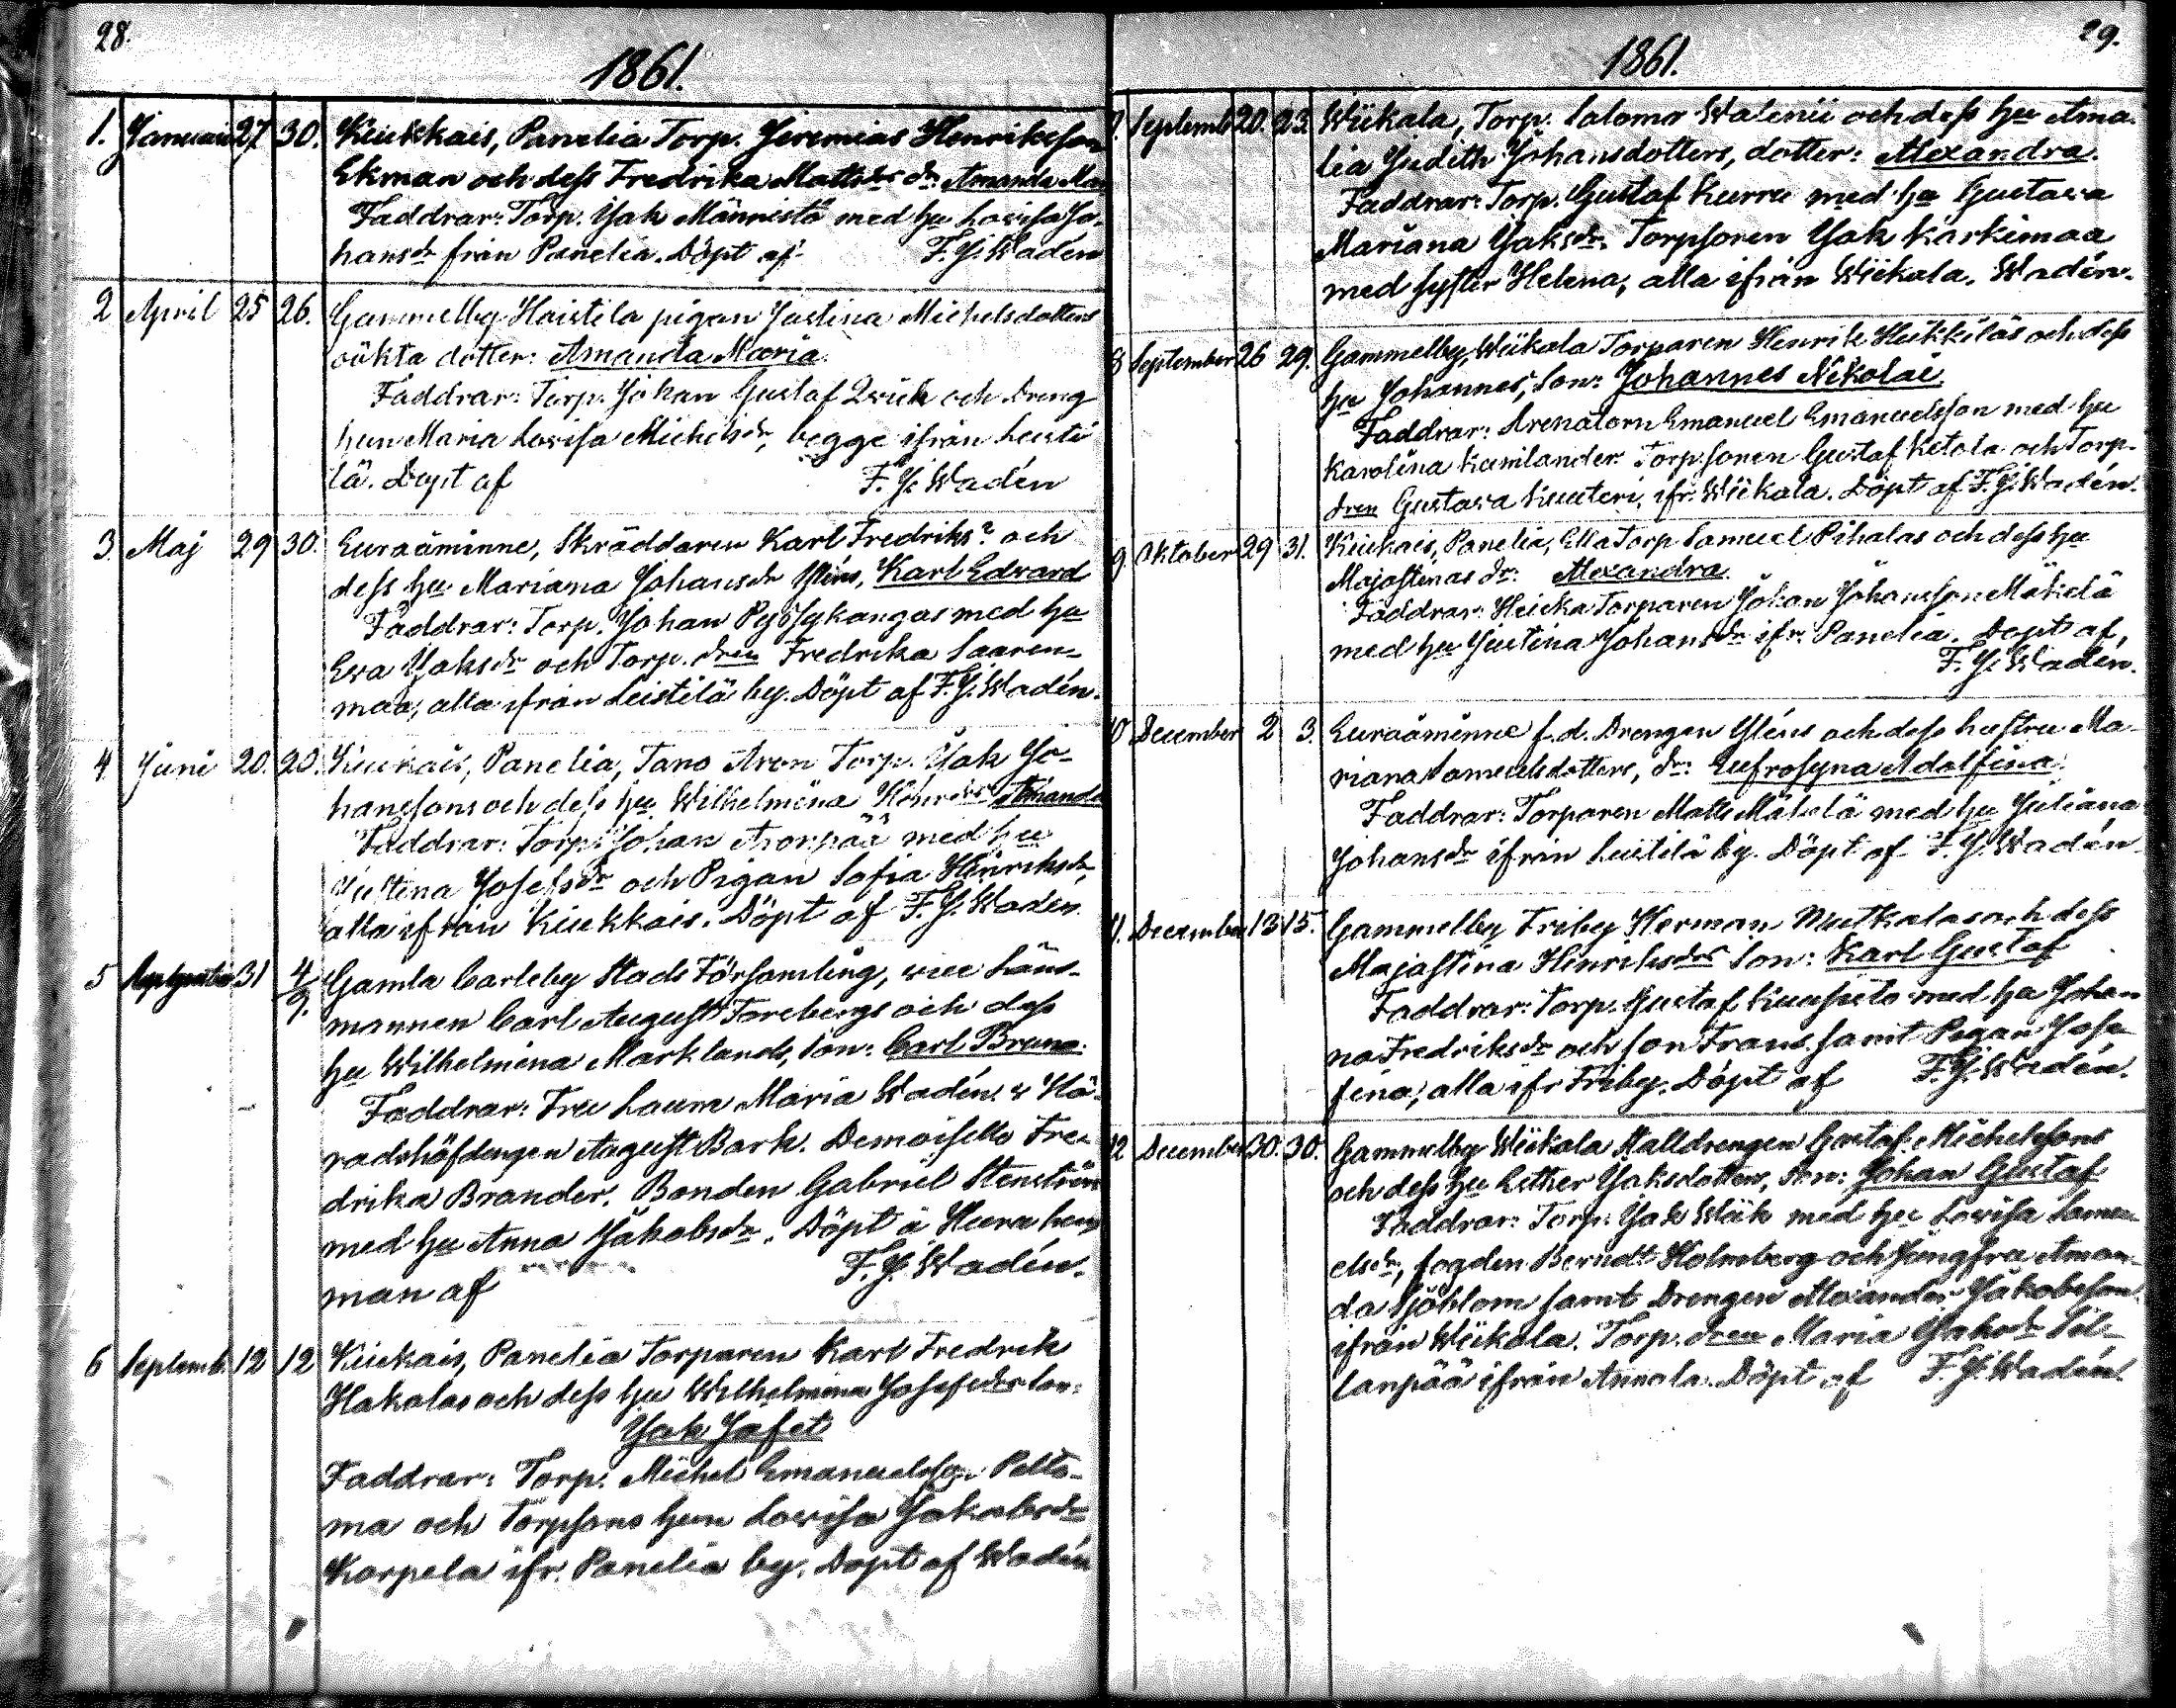 28.
1861.
1. Januari 27 30. Kiukkais, Panelia Torp. Jeremias Henriksson
Ekman och dess Fredrika Mattsdrs dr. Amanda Mar
Faddrar: Torp. Jak Männistö med hu Lovisa Jo-
hansdr från Panelia. Döpt af F. J. Wadén
2 April 25 26. Gammelby Haistila pigan Justina Michelsdotters
oäkta dotter: Amanda Maria.
Faddrar: Torp. Johan Gustaf Qvick och Dreng
hun Maria Lovisa Michelsdr, begge ifrån Leisti
lä. Döpt af F. J. Wadén
3. Maj 29 30. Euraåminne, Skräddaren Karl Fredriks? och
dess hu Mariana Johansdr Karl Edvard
Faddrar: Torp. Johan Pyösykangas med hu
Eva Jaksdr och Torp. dren Fredrika Saaren-
maa, alla ifrån Leistilä by. Döpt af F. J. Wadén.
4 Juni 20. 20. Kiukais, Panelia, Tano Aron Torp. Jak Jo-
hanssons och dess hu Wilhelmina Amanda
Faddrar: Torp. Johan Aronpää med hu
Justina Josefsdr och Pigan Sofia Hinriksdr,
alla ifrån Kiukkais. Döpt af F. J. Wadén
5 31 4/9. Gamla Carleby Stads Församling, vice Läns-
mannen Carl August Forsbergs och dess
hu Wilhelmina Marklands, son: Carl Bruno.
Faddrar: Fru Laura Maria Wadén. v Hä-
radshöfdingen August Bark. Demoiselle Fre-
drika Brander. Bonden Gabriel Stenström
med hu Anna Jakobsdr. Döpt å
man af F. J. Wadén.
6 Septemb. 12 12 Kiukais, Panelia Torparen Karl Fredrik
Hakalas och dess hu Wilhelmina Josefsdrs son:
Jak Jafet
Faddrar: Torp. Michel Emanuelsson Pelto-
ma och Torpsons hun Lovisa Jakobsdr
Korpela ifr. Panelia by. Döpt af Wadén
29.
1861.
7. Septemb 20. 23. Wiikala, Torp. Salomo Walenii och dess hu Ama-
lia Judith Johansdotters, dotter: Alexandra.
Faddrar: Torp. Gustaf Kurru med hu Gustava
Mariana Jaksdr. Torpsonen Jak Karkimaa
med syster Helena, alla ifrån Wiikala. Wadén.
8 September 26 29. Gammelby, Wiikala Torparen Henrik Heikkiläs och dess
hu Johannas, son: Johannes Nikolai.
Faddrar: Arenatorn Emanuel Emanuelsson med hu
Karolina Kumlander. Torpsonen Gustaf Ketola och Torp-
dren Gustava Kuuteri, ifr. Wiikala. Döpt af F. J. Wadén.
9 Oktober 29 31. Kiukais, Panelia, Ella Torp Samuel Pihalas och dess hu
Majastinas dr: Alexandra.
Faddrar: Heikka Torparen Johan Johansson Mäkelä
med hu Justina Johansdr ifr. Panelia. Döpt af,
F. J. Wadén.
10 December 2 3. Euraåminne f.d. Drengen Yléns och dess hustru Ma-
riana Samuelsdotters, dr: Eufrosyna Adolfina.
Faddrar: Torparen Matts Mäkelä med hu Juliana
Johansdr ifrån Leistilä by. Döpt af F. J. Wadén
11. December 13 15. Gammelby Friby Herman Nuutkalas och dess
Majastina Hinriksdrs son: Karl Gustaf
Faddrar: Torp. Gustaf Kuusisto med hu Johan
na Fredriksdr och son Frans samt Pigan Jose
fina, alla ifr Friby. Döpt af F. J. Wadén.
12 December 30. 30. Gammelby Wiikala Stalldrengen Gustaf Michelssons
och dess hu Esther Jaksdotters, son: Johan Gustaf
Faddrar: Torp. Jak Wiik med hu Lovisa Samu
elsdr, fogden Berndt Holmberg och Jungfru Aman-
da Sjöblom samt Drengen Alexander Jakobsson
ifrån Wiikala. Torp. dren Maria Jaksdr Sil-
lanpää ifrån Annola. Döpt af F. J. Wadén.